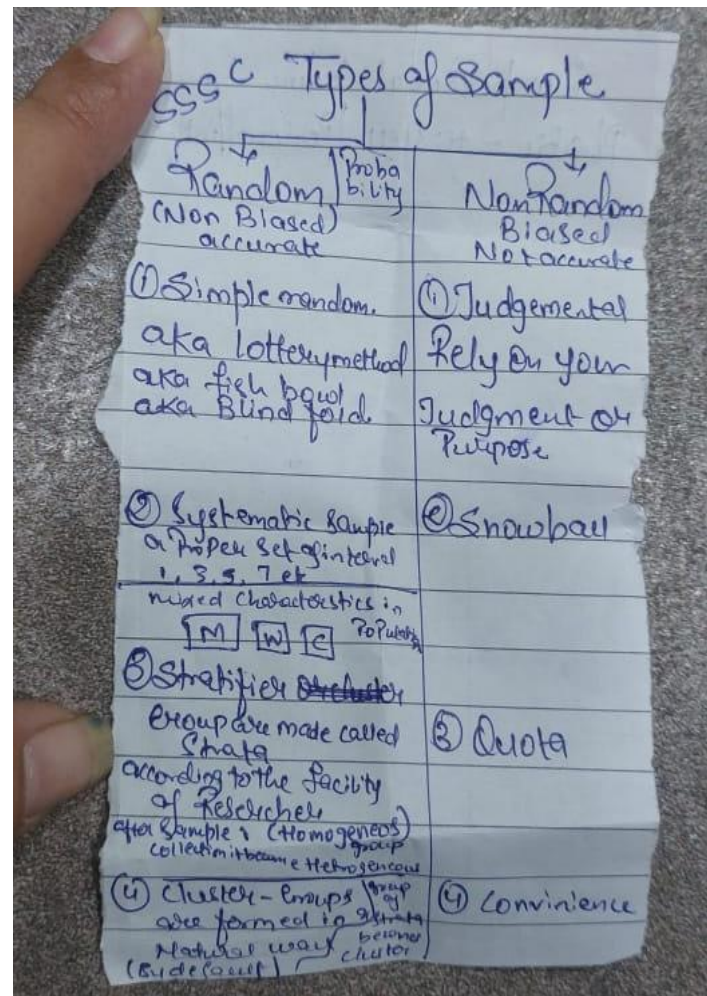 SSSC Types of Sample
Random | Proba
bility
(Non Biased)
accurate
① Simple random.
aka lottery method
aka fish bowl
aka Blind fold
② Systematic sample
a Proper set of interval
1, 3, 5, 7 etc
mixed characterstics in
M W C Population
③ Stratifier
Group are made called
Strata
according to the facility
of Researcher
after Sample: (Homogeneos)
group
collection it became Hetrogeneous
④ Cluster - Groups
are formed in
Natural way
(By default)
group
of
strata
becomes
cluster
Non Random
Biased
Not accurate
① Judgemental
Rely on your
Judgment or
Purpose
② Snowball
③ Quota
④ Convinience